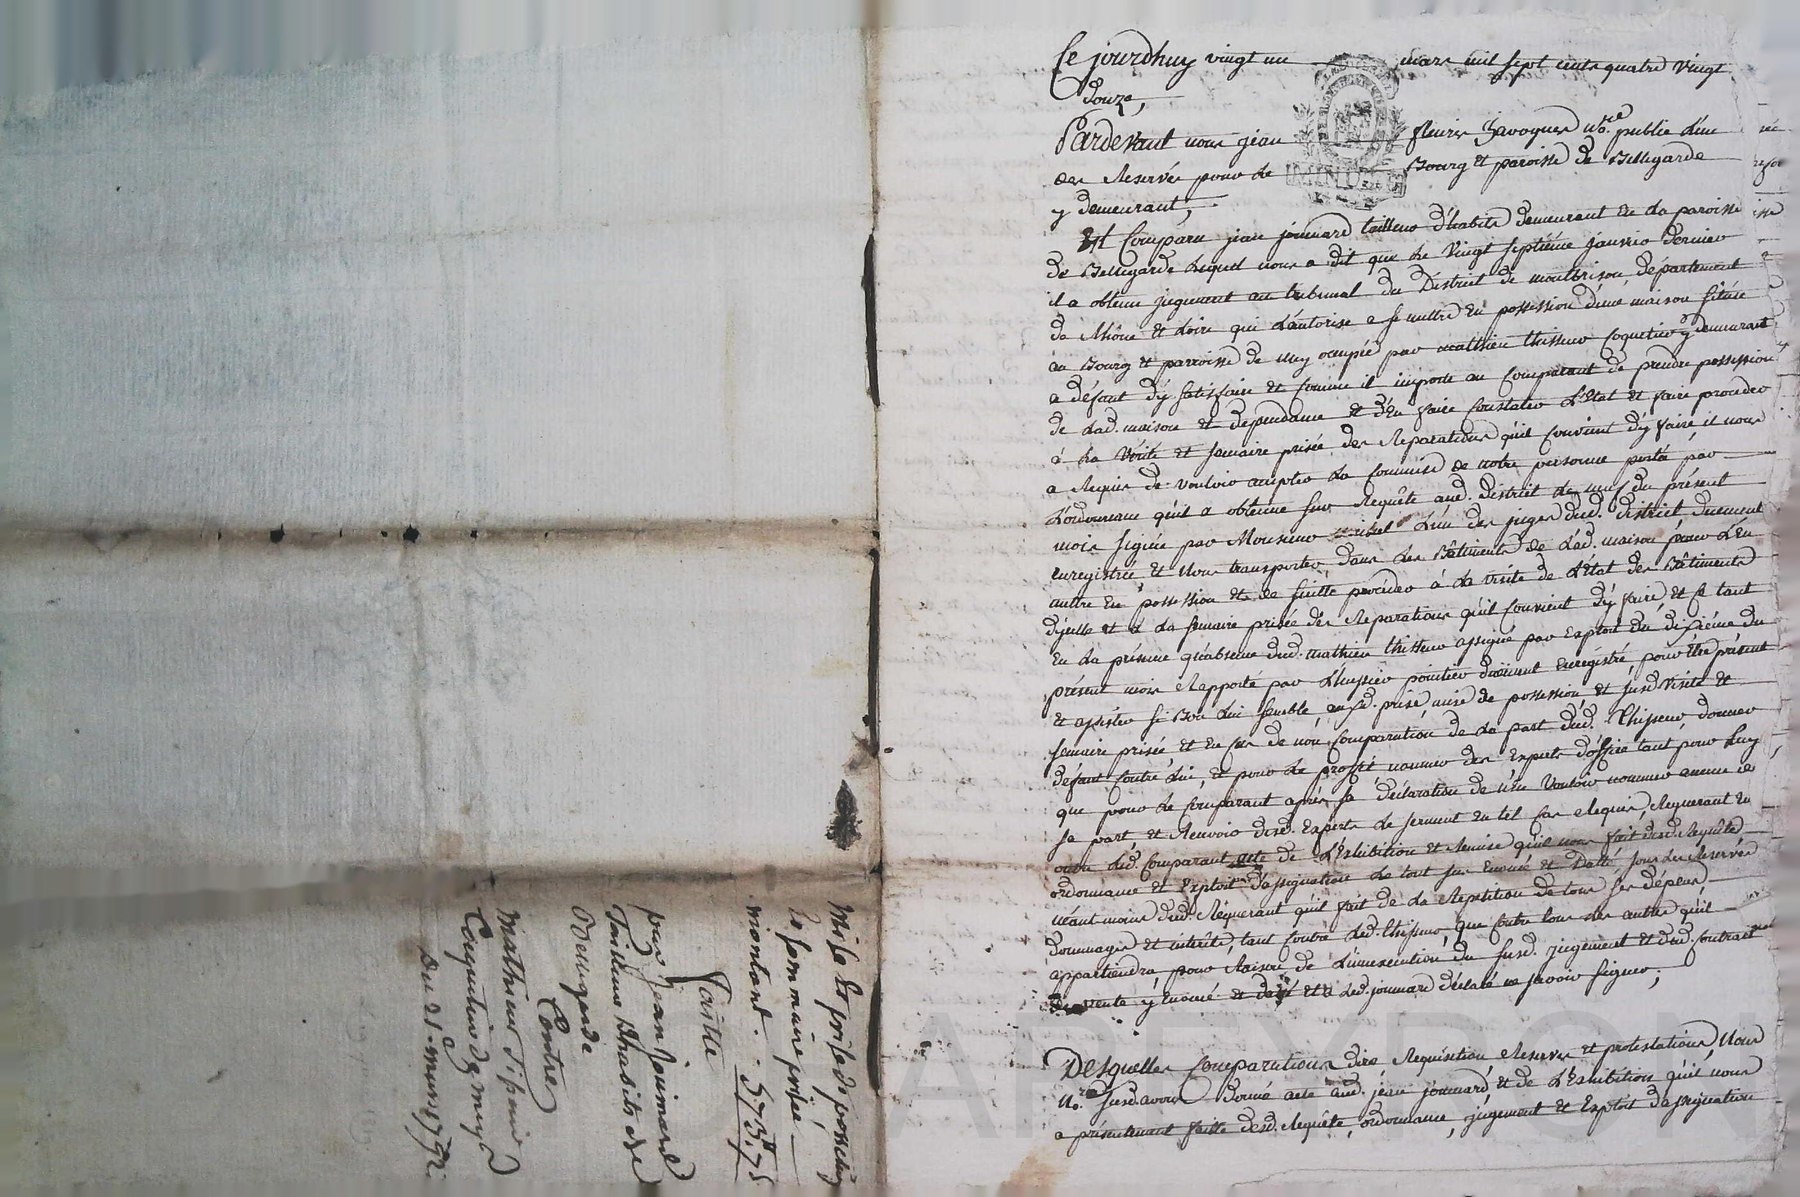 Ce jourdhuy vingt un mars mil sept cents quatre vingt
douze,
Pardevant nous jean fleury Javogues no.re public l'un
des Reservés pour le Bourg et paroisse de Bellegarde
MINUTE
y demeurant,
Est Comparu jean joumard tailleur d'habits demeurant en la paroisse
de Bellegarde lequel nous a dit que le vingt septiéme janvier dernier
il a obtenu jugement au tribunal du District de montbrison, département
de Rhône et Loire qui l'autorise a se mettre en possession d'une maison située
au Bourg et parroisse de par mathieu thisseur coquetier y demeurant
a défaut d'y satisfaire et comme il importe au Comparant de prendre possession
de lad. maison et dépendance et d'en faire constater l'Etat et faire proceder
à la visite et somaire prisée des Reparations qu'il convient d'y faire, il nous
a Requis de vouloir accepter la Commise de notre personne porté par
L'ordonnance qu'il a obtenue sur Requête aud. District le neuf du présent
mois signée par Monsieur l'un des juges dud. District duement
enregistrée, et Nous transporter dans les Bâtiments de lad. maison pour l'en
mettre en possession et de suitte procéder à la visite de l'Etat des Bâtiments
d'ycelle et a la somaire prisée des Reparations qu'il convient d'y faire, et ce tant
en la présence qu'absence dud. mathieu thisseur assigné par Exploit du dixiéme du
présent mois Rapporté par L'huissier duement enregistré, pour être présent
et assister si Bon lui semble, aud. prise mise de possession, et susd. visite et
somaire prisée et en cas de non comparution de la part dud. Thisseur, donner
défaut contre lui, et pour le profit nommer des Experts d'office tant pour luy
que pour le Comparant après sa déclaration de n'en vouloir nommer aucun de
sa part, et Recevoir desd. Experts le serment en tel cas Requis, Requerant en
outre led. Comparant acte de l'Exhibition et Remise qu'il nous fait desd. Requête
ordonnance et Exploit d'assignation le tout sus Enoncé et Datté sous les Reserves
néantmoins dud. Réquerant qu'il fait de la Repetition de tous ses dépens
dommages et intérêts, tant contre led. thisseur, que contre tous les autres qu'il
appartiendra pour Raison de l'inexecution du susd. jugement et dud. contrat
de vente y Enoncé et led. joumard déclaré ne savoir signer;
Desquelles Comparutions, dire, Requisition, Reserves et protestations, Nous
No.re susd. avons donné acte aud. jean joumard et de L'Exhibition qu'il nous
a présentement faitte desd. Requête, ordonnance, jugement et Exploit d'assignation
Mise Et prise de possession
Et sommaire prisée
montant
Pour Jean Joumard
Tailleur Dhabits de
Bellegarde
Contre
Mathieu Tisseur
Coquetier de
du 21 mars 1792
APEYRON